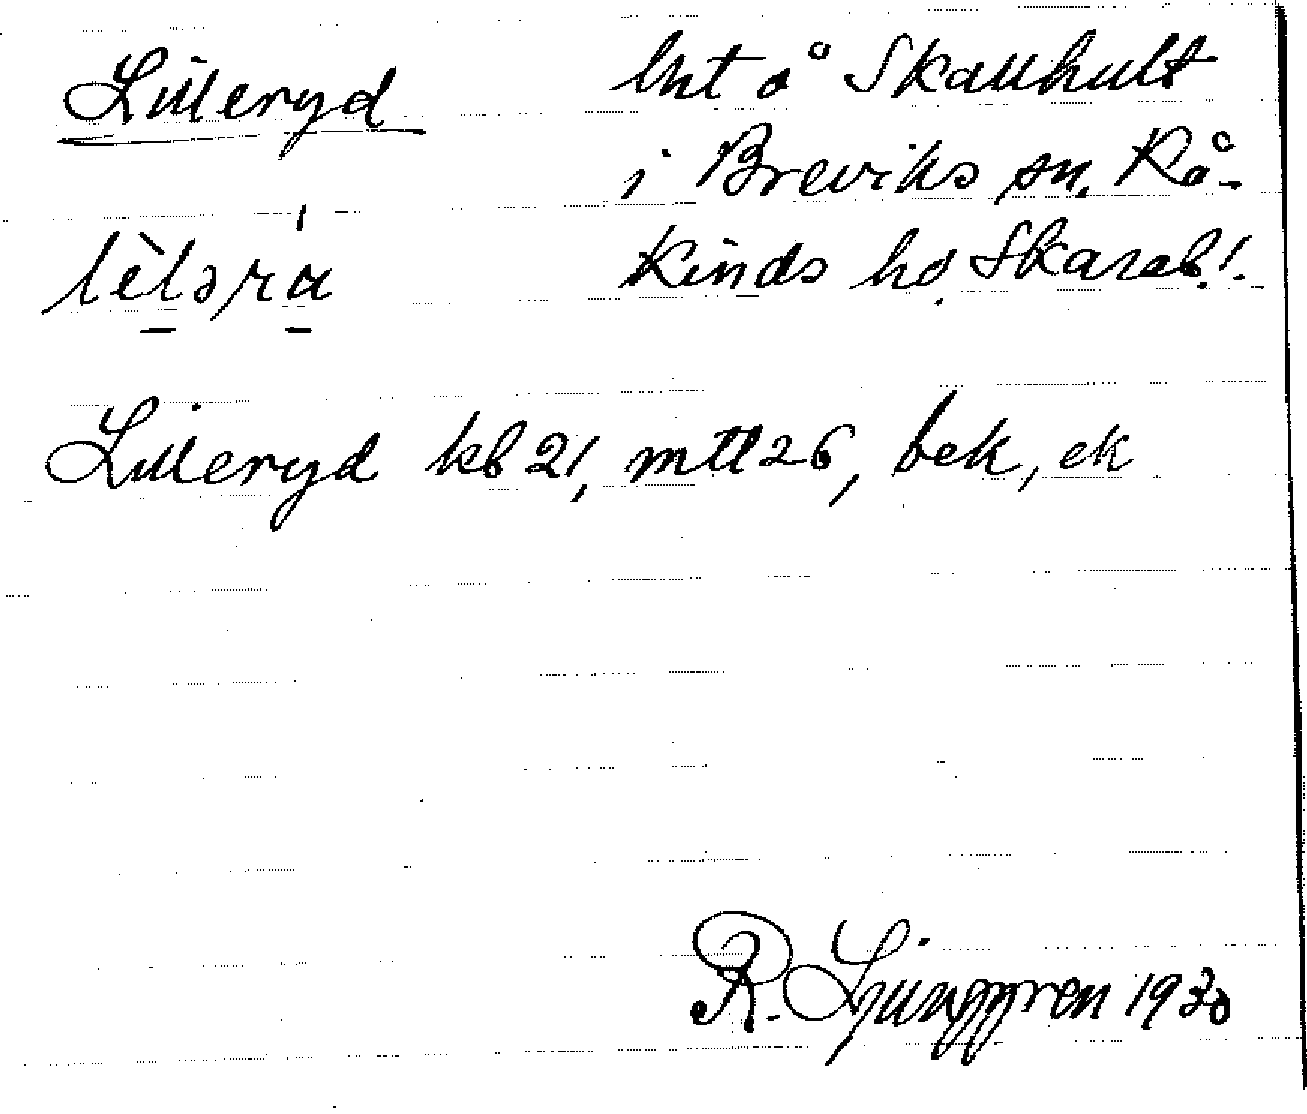 Lilleryd
lht å Skauhult
i Breviks sn. Rå-
Kinds hd Skarab. l.
Lilleryd kb 21, mtl 26, bek, ek
R. Ljunggren 1930